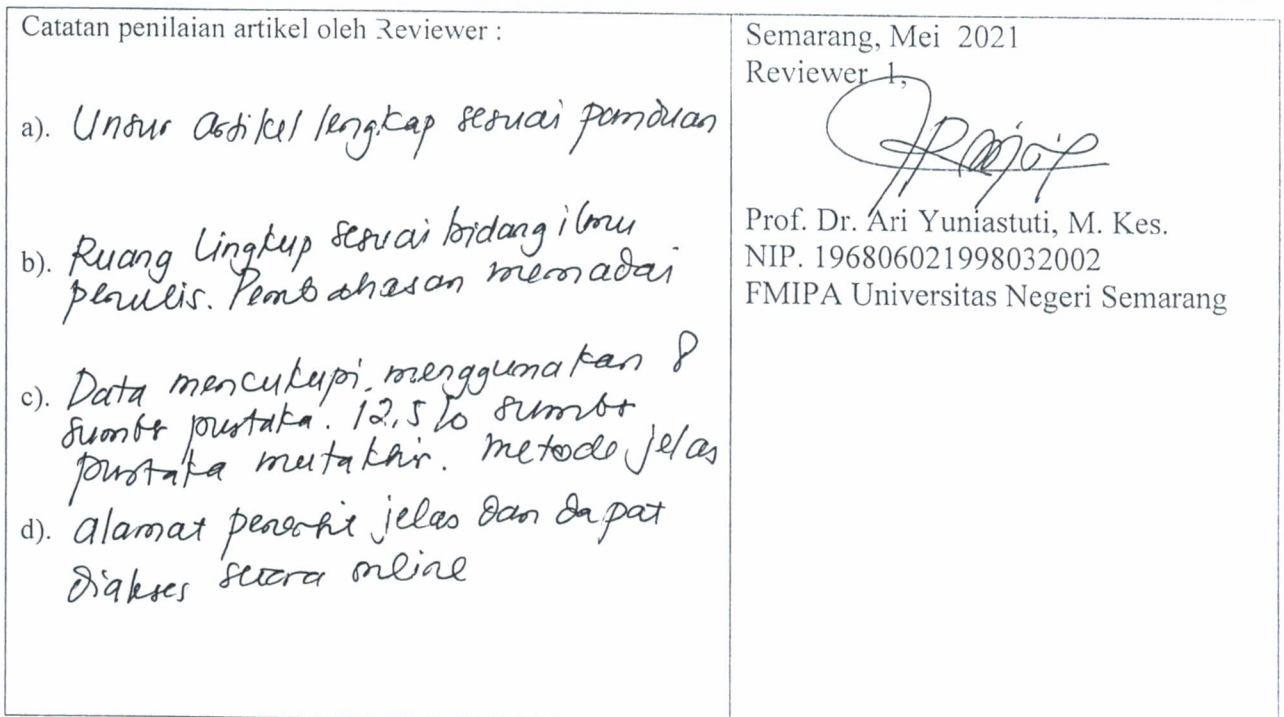 Catatan penilaian artikel oleh Reviewer :
a). Unsur artikel lengkap sesuai panduan
b). Ruang lingkup sesuai bidang ilmu
penulis. Pembahasan memadai
c). Data mencukupi, menggunakan 8
sumber pustaka. 12,5 % sumber
pustaka mutakhir. metode jelas
d). alamat penerbit jelas dan dapat
diakses secara online
Semarang, Mei 2021
Reviewer 1,
Prof. Dr. Ari Yuniastuti, M. Kes.
NIP. 196806021998032002
FMIPA Universitas Negeri Semarang